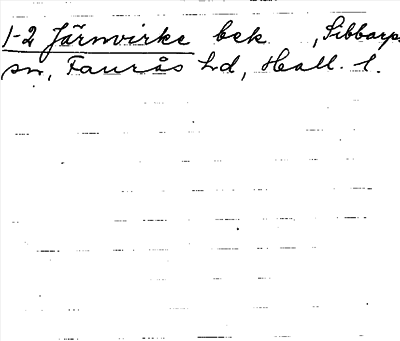 1-2 Järnvirke bek , Sibbarps
sn, Faurås hd, Hall. l.